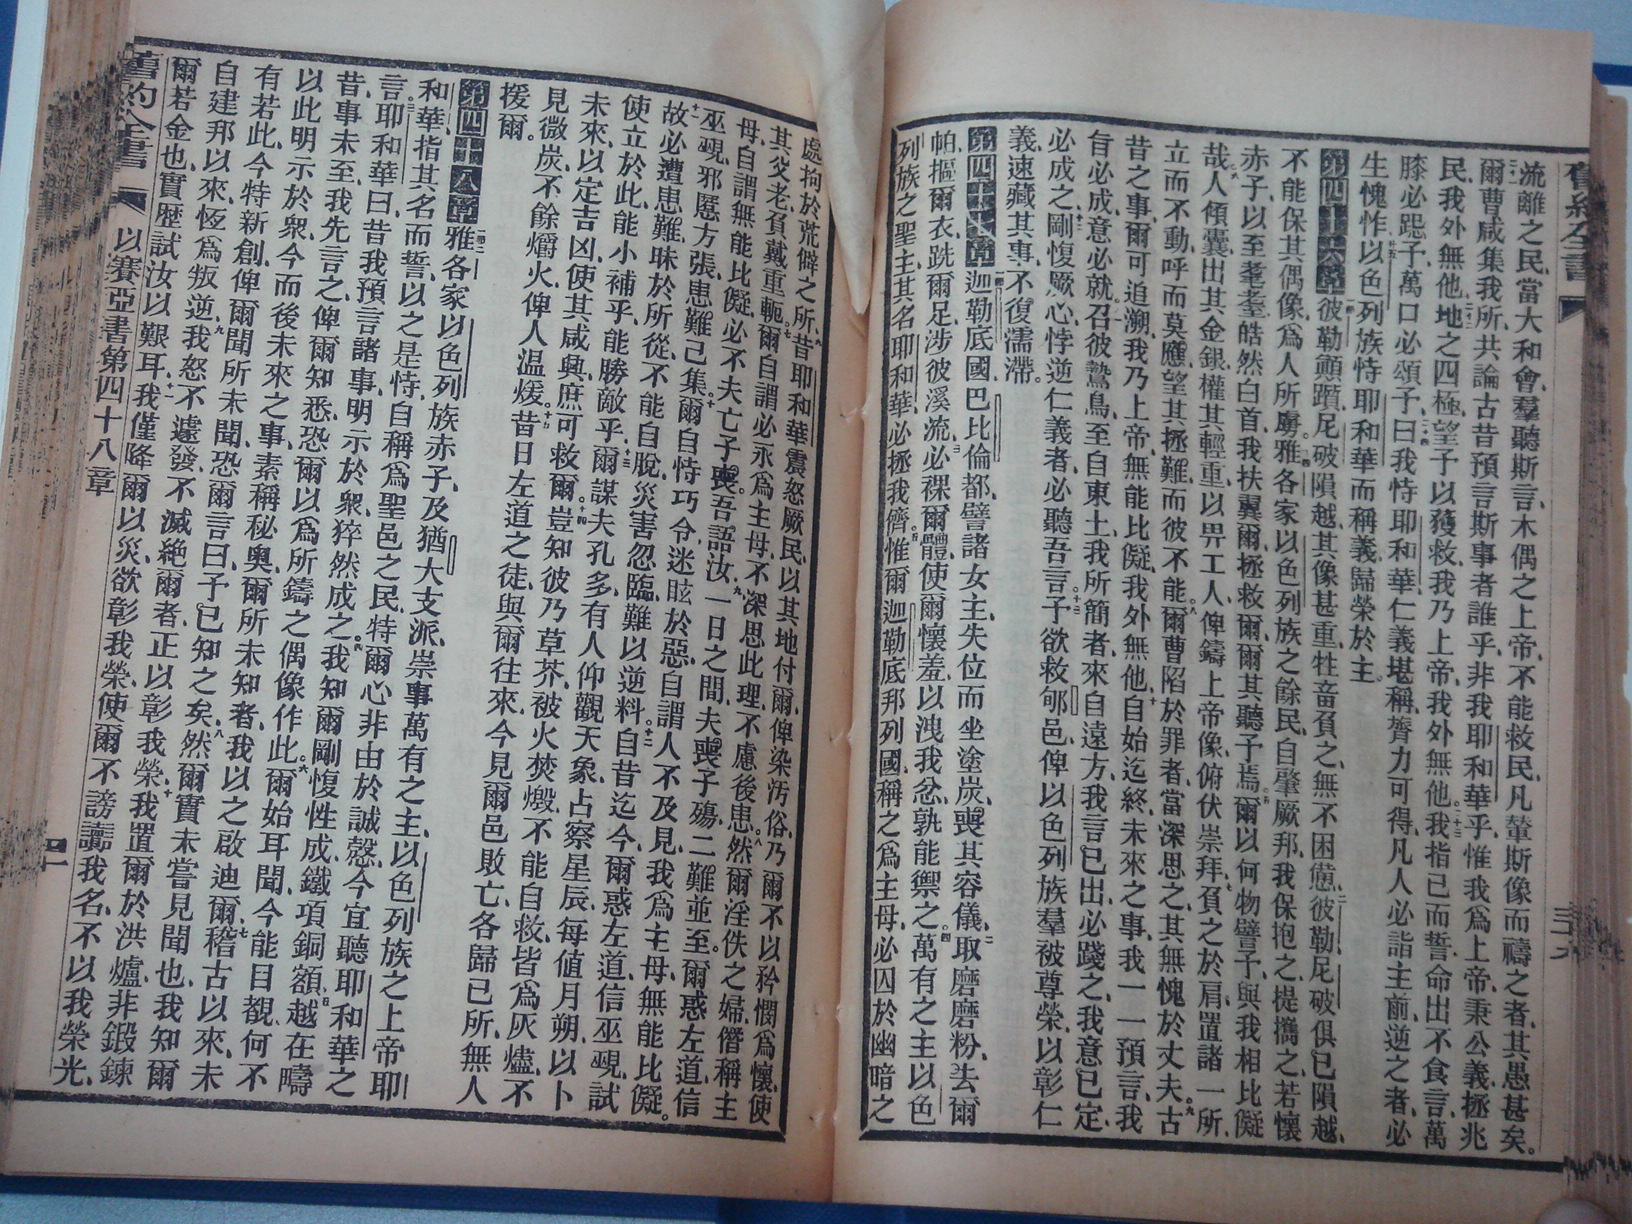 舊約全書
流離之民、當大和會、羣聽斯言、木偶之上帝、不能救民、凡輦斯像而禱之者、其愚甚矣。
爾曹咸集我所、共論古昔、預言斯事者誰乎、非我耶和華乎、惟我爲上帝、秉公義、拯兆
民、我外無他、地之四極、望予以獲救、我乃上帝、我外無他、我指已而誓、命出不食言、萬
膝必跽予、萬口必頌予、曰、我恃耶和華、仁義堪稱、膂力可得、凡人必詣主前、逆之者必
生愧怍、以色列族恃耶和華而稱義、歸榮於主。
第四十六章 彼勒顚躓、尼破隕越、其像甚重、牲畜負之、無不困憊、彼勒尼破、俱已隕越、
不能保其偶像、爲人所虜、雅各家、以色列族之餘民、自肇厥邦、我保抱之、提攜之、若懷
赤子、以至耄耋、皓然白首、我扶翼爾、拯救爾、爾其聽予焉、爾以何物譬予、與我相比儗
哉、人傾囊出其金銀、權其輕重、以畀工人、俾鑄上帝像、俯伏崇拜、負之於肩、置諸一所、
立而不動、呼而莫應、望其拯難、而彼不能、爾曹陷於罪者、當深思之、其無愧於丈夫、古
昔之事、爾可追溯、我乃上帝、無能比儗、我外無他、自始迄終、未來之事、我一一預言、我
旨必成、意必就、召彼鷙鳥、至自東土、我所簡者、來自遠方、我言已出、必踐之、我意已定、
必成之、剛愎厥心、悖逆仁義者、必聽吾言、予欲救郇邑、俾以色列族羣被尊榮、以彰仁
義、速藏其事、不復濡滯。
第四十七章 迦勒底國巴比倫都、譬諸女主、失位而坐塗炭、喪其容儀、取磨磨粉、去爾
帕、摳爾衣、跣爾足、涉彼溪流、必裸爾體、使爾懷羞、以洩我忿、孰能禦之、萬有之主、以色
列族之聖主、其名耶和華、必拯我儕、惟爾迦勒底邦、列國稱之爲主母、必囚於幽暗之
處、拘於荒僻之所、昔耶和華震怒厥民、以其地付爾、俾染汚俗、乃爾不以矜憫爲懷、使
其父老、負戴重軛、爾自謂必永爲主母、不深思此理、不慮後患、然爾淫佚之婦、僭稱主
母、自謂無能比儗、必不夫亡子喪、吾語汝、一日之間、夫喪子殤、二難並至、爾惑左道、信
巫覡、邪慝方張、患難已集、爾自恃巧令、迷眩於惡、自謂人不及見、我爲主母、無能比儗。
故必遭患難、昧於所從、不能自脫、災害忽臨、難以逆料、自昔迄今、爾惑左道、信巫覡、試
使立於此、能小補乎、能勝敵乎、爾謀夫孔多、有人仰觀天象、占察星辰、每値月朔、以卜
未來、以定吉凶、使其咸興、庶可救爾、豈知彼乃草芥、被火焚燬、不能自救、皆爲灰燼、不
見微炭、不餘爝火、俾人溫煖、昔日左道之徒、與爾往來、今見爾邑敗亡、各歸已所、無人
援爾。
第四十八章 雅各家、以色列族赤子、及猶大支派、崇事萬有之主、以色列族之上帝耶
和華、指其名而誓、以之是恃、自稱爲聖邑之民、特爾心非由於誠慤、今宜聽耶和華之
言、耶和華曰、昔我預言諸事、明示於衆、猝然成之、我知爾剛愎性成、鐵項銅額、越在疇
昔、事未至、我先言之、俾爾知悉、恐爾以爲所鑄之偶像作此、爾始耳聞、今能目覩、何不
以此明示於衆、今而後未來之事、素稱秘奧、爾所未知者、我以之啟迪爾、稽古以來、未
有若此、今特新創、俾爾聞所未聞、恐爾言曰、予已知之矣、然爾實未嘗見聞也、我知爾
自建邦以來、恆爲叛逆、我怒不遽發、不滅絕爾者、正以彰我榮、我置爾於洪爐、非鍛鍊
爾若金也、實歷試汝以艱耳、我僅降爾以災、欲彰我榮、使爾不謗讟我名、不以我榮光、
舊約全書
以賽亞書第四十八章